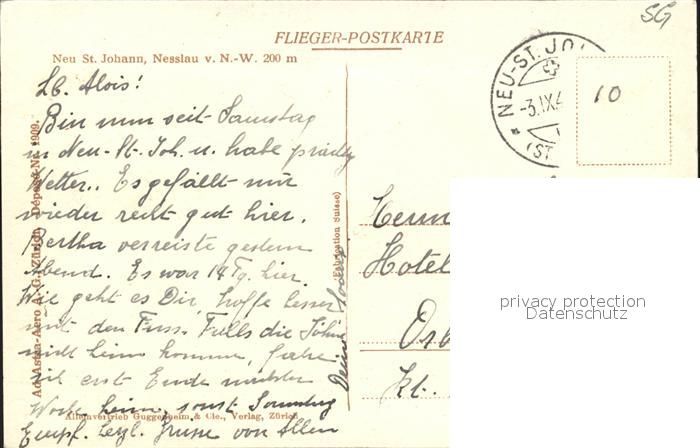 SG
FLIEGER-POSTKARTE
Neu St. Johann, Nesslau v. N.-W. 200 m
NEU-ST. JO
-3.IX.4
(ST
10
Lb. Alois!
Bin nun seit Samstag
in Neu-St. Joh. u. habe prächtg
Wetter.. Es gefällt mir
wieder recht gut hier.
Bertha verreiste gestern
Abend. Es war 14 Tg. hier.
Wie geht es Dir, hoffe besser
mit den Fuss. Falls die Söhne
nicht heim kommen,
ich erst Ende nächster
Woche heim, sonst Sonntag
Empf. herzl. Grüsse von Allen
Deine
Ad Astra-Aero A. G., Zürich Dépose-Nr. 1909.
(Fabrication Suisse)
Alleinvertrieb Guggenheim & Cie., Verlag, Zürich
Herrn
Hotel
Kt.
privacy protection
Datenschutz